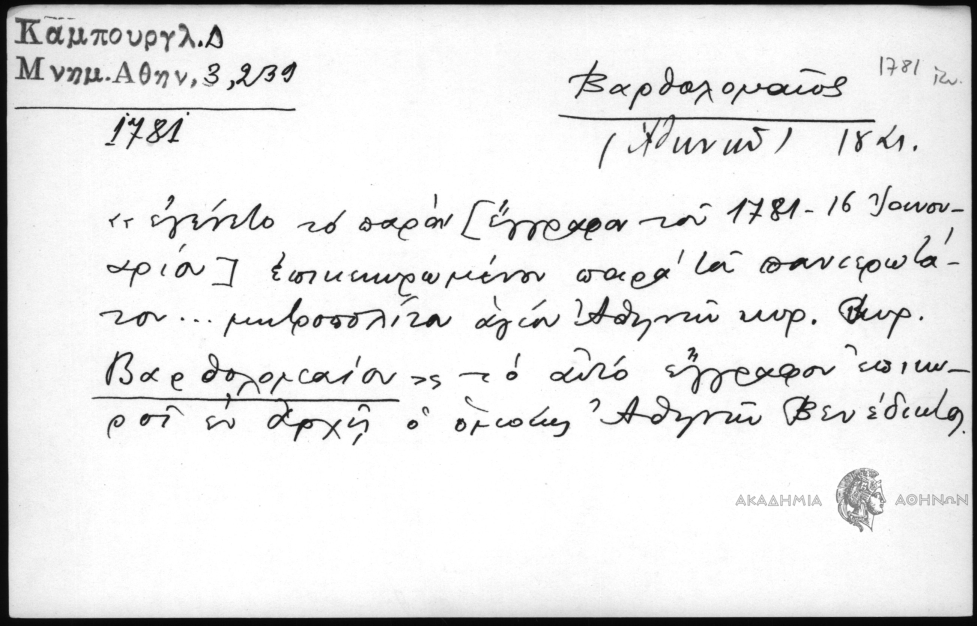 Καμπουργλ.Δ
Μνημ.Αθην, 3, 239
1781
1781 Ἰαν.
Βαρθολομαῖος
(Ἀθηνῶν)
«ἐγένετο τό παρόν [ἔγγραφον τοῦ 1781-16 Ἰανου-
αρίου] ἐπικεκυρωμένον παρά τοῦ πανιερωτά-
του ... μητροπολίτου ἁγίου Ἀθηνῶν κυρ. κυρ.
Βαρθολομαίου» τό αὐτό ἔγγραφον ἐπικυ-
ροῖ ἐν ἀρχῇ ὁ ὁμοίως Ἀθηνῶν Βενέδικτος.
ΑΚΑΔΗΜΙΑ ΑΘΗΝΩΝ